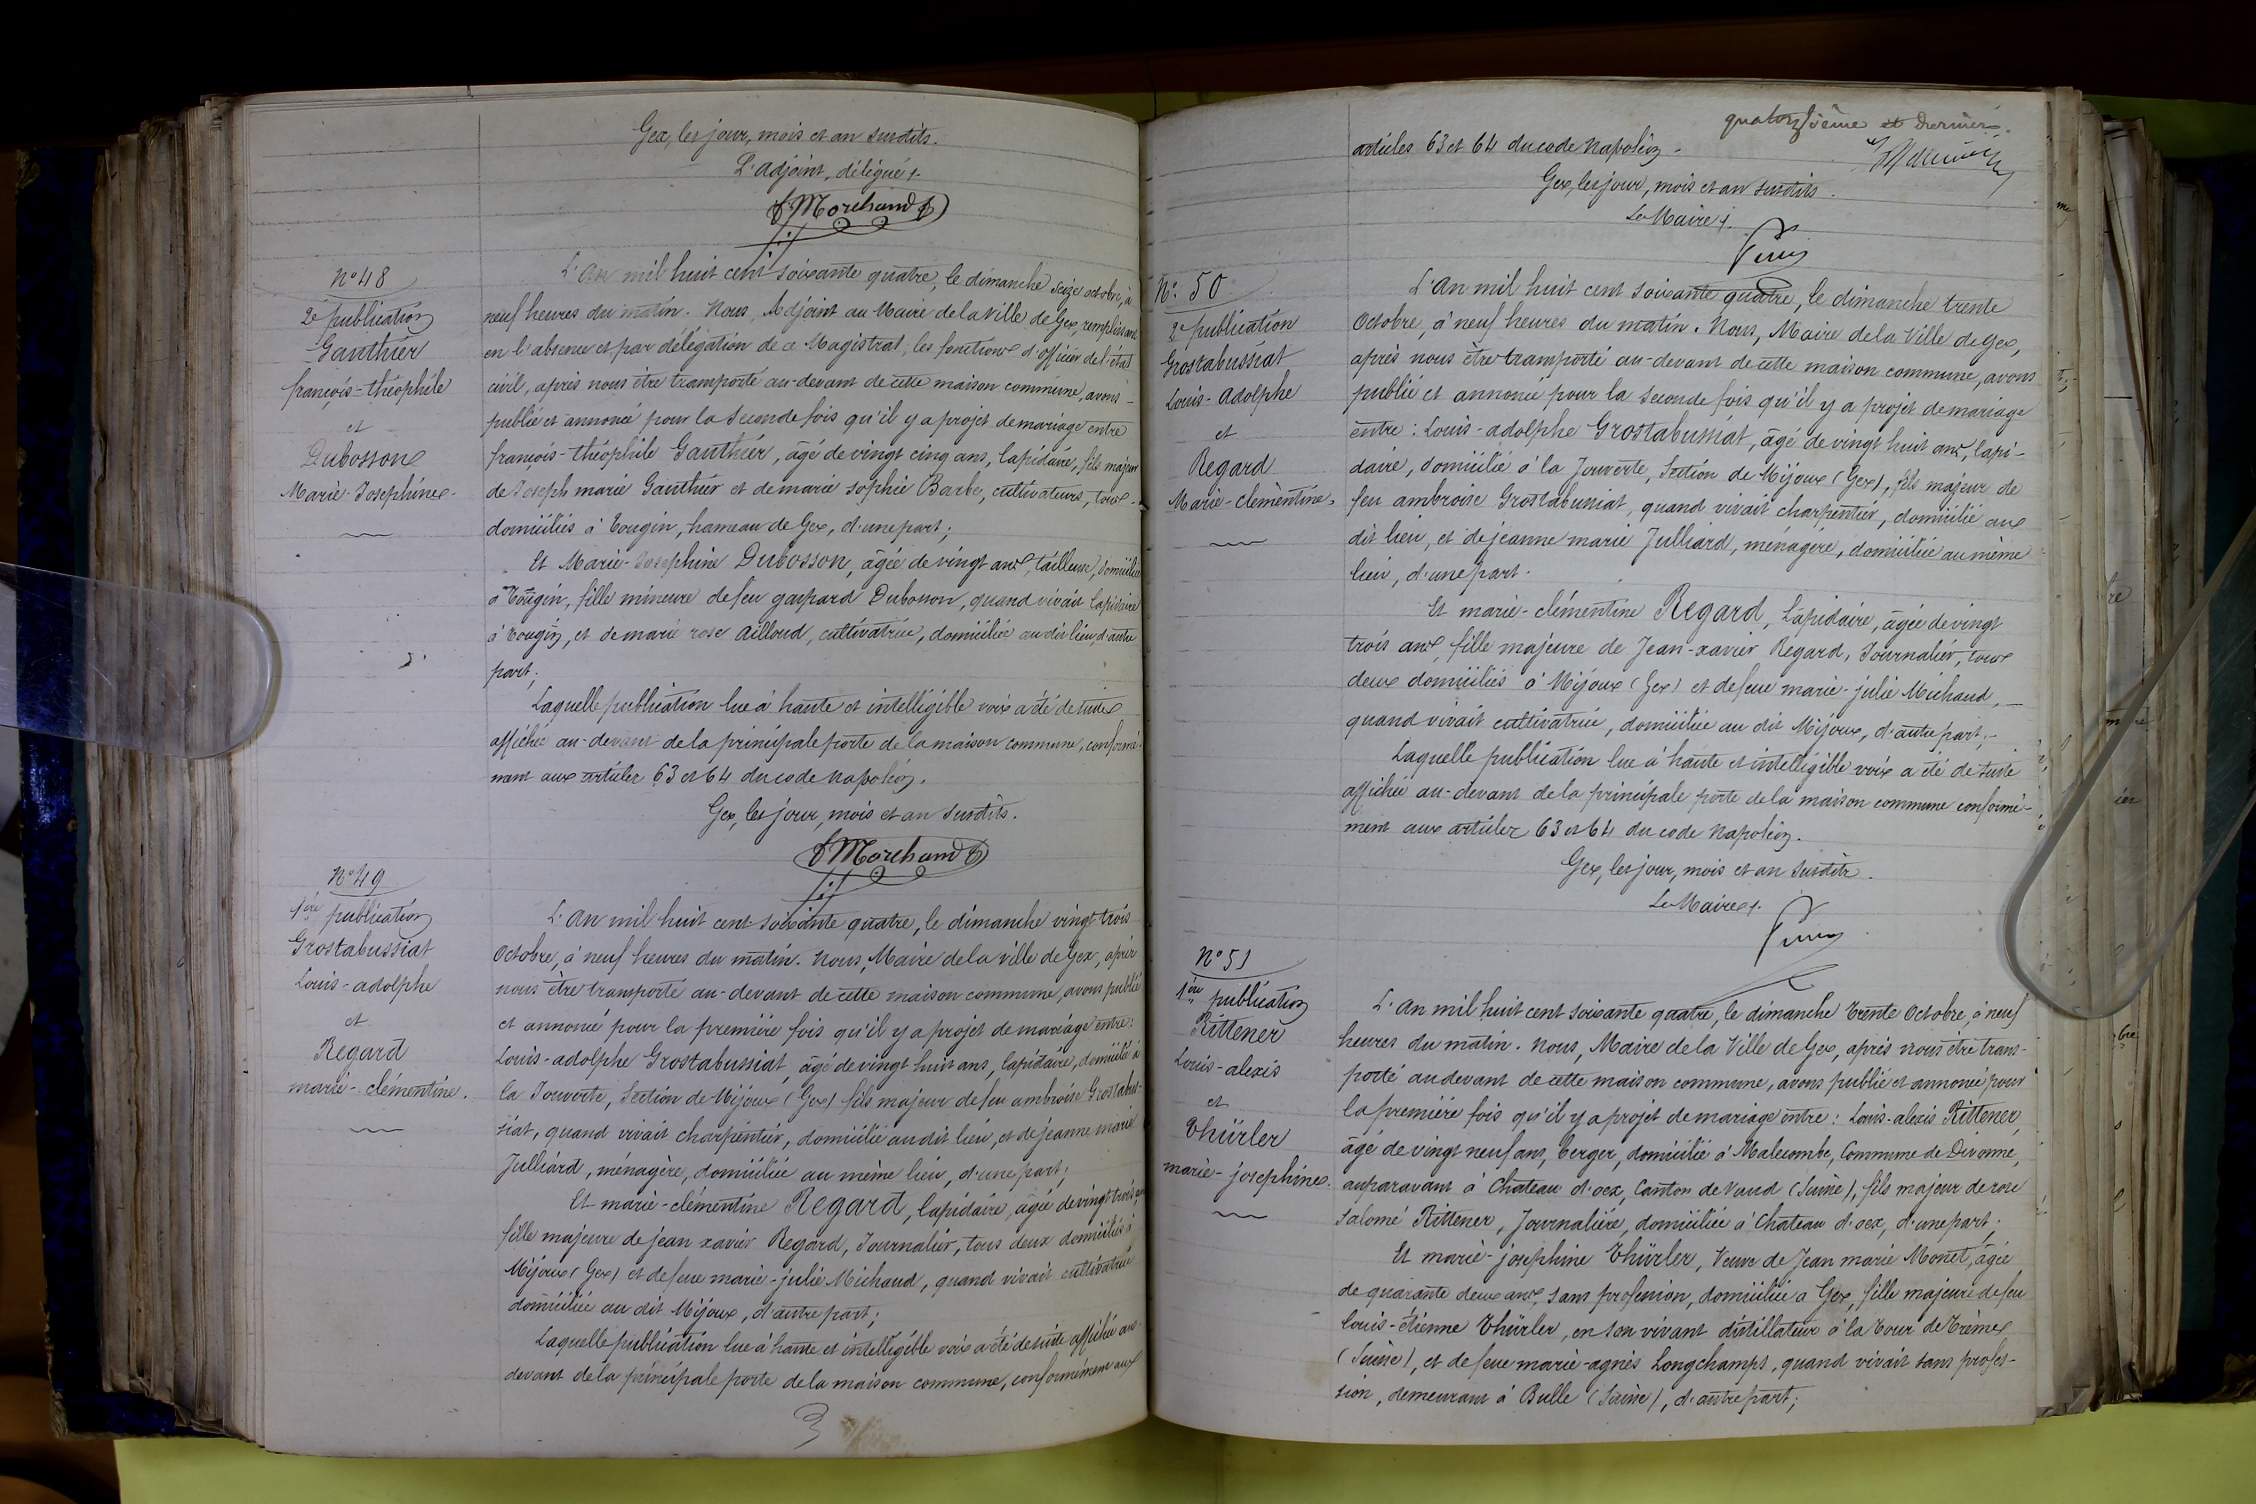 Gex, les jour, mois et an susdits.
L'adjoint, délégué,
Morchand
N° 48
2e publication
Gauthier
françois-théophile
et
Dubosson
Marie-Josephine
L'An mil huit cent soixante quatre, le dimanche seize octobre, à
neuf heures du matin. Nous, Adjoint au Maire de la ville de Gex, remplissant
en l'absence et par délégation de ce Magistrat, les fonctions d'officier de l'état
civil, après nous être transporté au-devant de cette maison commune, avons
publié et annoncé pour la seconde fois qu'il y a projet de mariage entre
françois-théophile Gauthier, âgé de vingt cinq ans, lapidaire, fils majeur
de Joseph marie Gauthier et de marie sophie Barbe, cultivateurs, tous
domiciliés à Tougin, hameau de Gex, d'une part;
Et Marie-Josephine Dubosson, âgée de vingt ans, tailleuse, domiciliée
à Tougin, fille mineure de feu gaspard Dubosson, quand vivait lapidaire
à Tougin, et de marie rose Ailloud, cultivatrice, domiciliée au dit lieu, d'autre
part;
Laquelle publication lue à haute et intelligible voix a été de suite
affichée au-devant de la principale porte de la maison commune, conformé-
ment aux articles 63 et 64 du code napoléon.
Gex, les jour, mois et an susdits.
Morchand
N° 49
1ère publication
Grostabussiat
Louis-adolphe
et
Regard
marie-clémentine.
L'An mil huit cent soixante quatre, le dimanche vingt trois
Octobre, à neuf heures du matin. Nous, Maire de la ville de Gex, après
nous être transporté au-devant de cette maison commune, avons publié
et annoncé pour la première fois qu'il y a projet de mariage entre:
Louis-adolphe Grostabussiat, âgé de vingt huit ans, lapidaire, domicilié à
la Jouverte, Section de Mijoux (Gex) fils majeur de feu ambroise Grostabus-
siat, quand vivait charpentier, domicilié au dit lieu, et de jeanne marie
Julliard, ménagère, domiciliée au même lieu, d'une part;
Et marie-clémentine Regard, lapidaire, âgée de vingt trois ans
fille majeure de jean xavier Regard, Journalier, tous deux domiciliés à
Mijoux (Gex) et de feue marie-julie Michaud, quand vivait cultivatrice
domiciliée au dit Mijoux, d'autre part;
Laquelle publication lue à haute et intelligible voix a été de suite affichée au-
devant de la principale porte de la maison commune, conformément aux
quatorzième et dernier.
articles 63 et 64 du code napoléon.
Gex, les jour, mois et an susdits.
Le Maire,
N° 50
2e publication
Grostabussiat
Louis-Adolphe
et
Regard
Marie-clémentine
L'An mil huit cent soixante quatre, le dimanche trente
Octobre, à neuf heures du matin. Nous, Maire de la Ville de Gex,
après nous être transporté au-devant de cette maison commune, avons
publié et annoncé pour la seconde fois qu'il y a projet de mariage
entre: Louis-adolphe Grostabussiat, âgé de vingt huit ans, lapi-
daire, domicilié à la Jouverte, Section de Mijoux (Gex), fils majeur de
feu ambroise Grostabussiat, quand vivait charpentier, domicilié au
dit lieu, et de jeanne marie Julliard, ménagère, domiciliée au même
lieu, d'une part.
Et marie-clémentine Regard, Lapidaire, âgée de vingt
trois ans, fille majeure de Jean-xavier Regard, Journalier, tous
deux domiciliés à Mijoux (Gex) et de feue marie-julie Michaud,
quand vivait cultivatrice, domiciliée au dit Mijoux, d'autre part;
Laquelle publication lue à haute et intelligible voix a été de suite
affichée au-devant de la principale porte de la maison commune conformé-
ment aux articles 63 et 64 du code napoléon.
Gex, les jour, mois et an susdits.
Le Maire,
N° 51
1ère publication
Rittener
Louis-alexis
et
Thürler
marie-josephine.
L'An mil huit cent soixante quatre, le dimanche trente Octobre, à neuf
heures du matin. Nous, Maire de la Ville de Gex, après nous être trans-
porté au devant de cette maison commune, avons publié et annoncé pour
la première fois qu'il y a projet de mariage entre: Louis-alexis Rittener,
âgé de vingt neuf ans, berger, domicilié à Malecombe, Commune de Divonne,
auparavant à Chateau d'oex, Canton de Vaud (Suisse), fils majeur de rose
salomé Rittener, Journalière, domiciliée à Chateau d'oex, d'une part;
Et marie-josephine Thürler, Veuve de Jean marie Monet, âgée
de quarante deux ans, sans profession, domiciliée a Gex, fille majeure de feu
Louis-étienne Thürler, en son vivant distillateur à la Tour de Trême
(Suisse), et de feue marie-agnès Longchamps, quand vivait sans profes-
sion, demeurant à Bulle (Suisse), d'autre part;